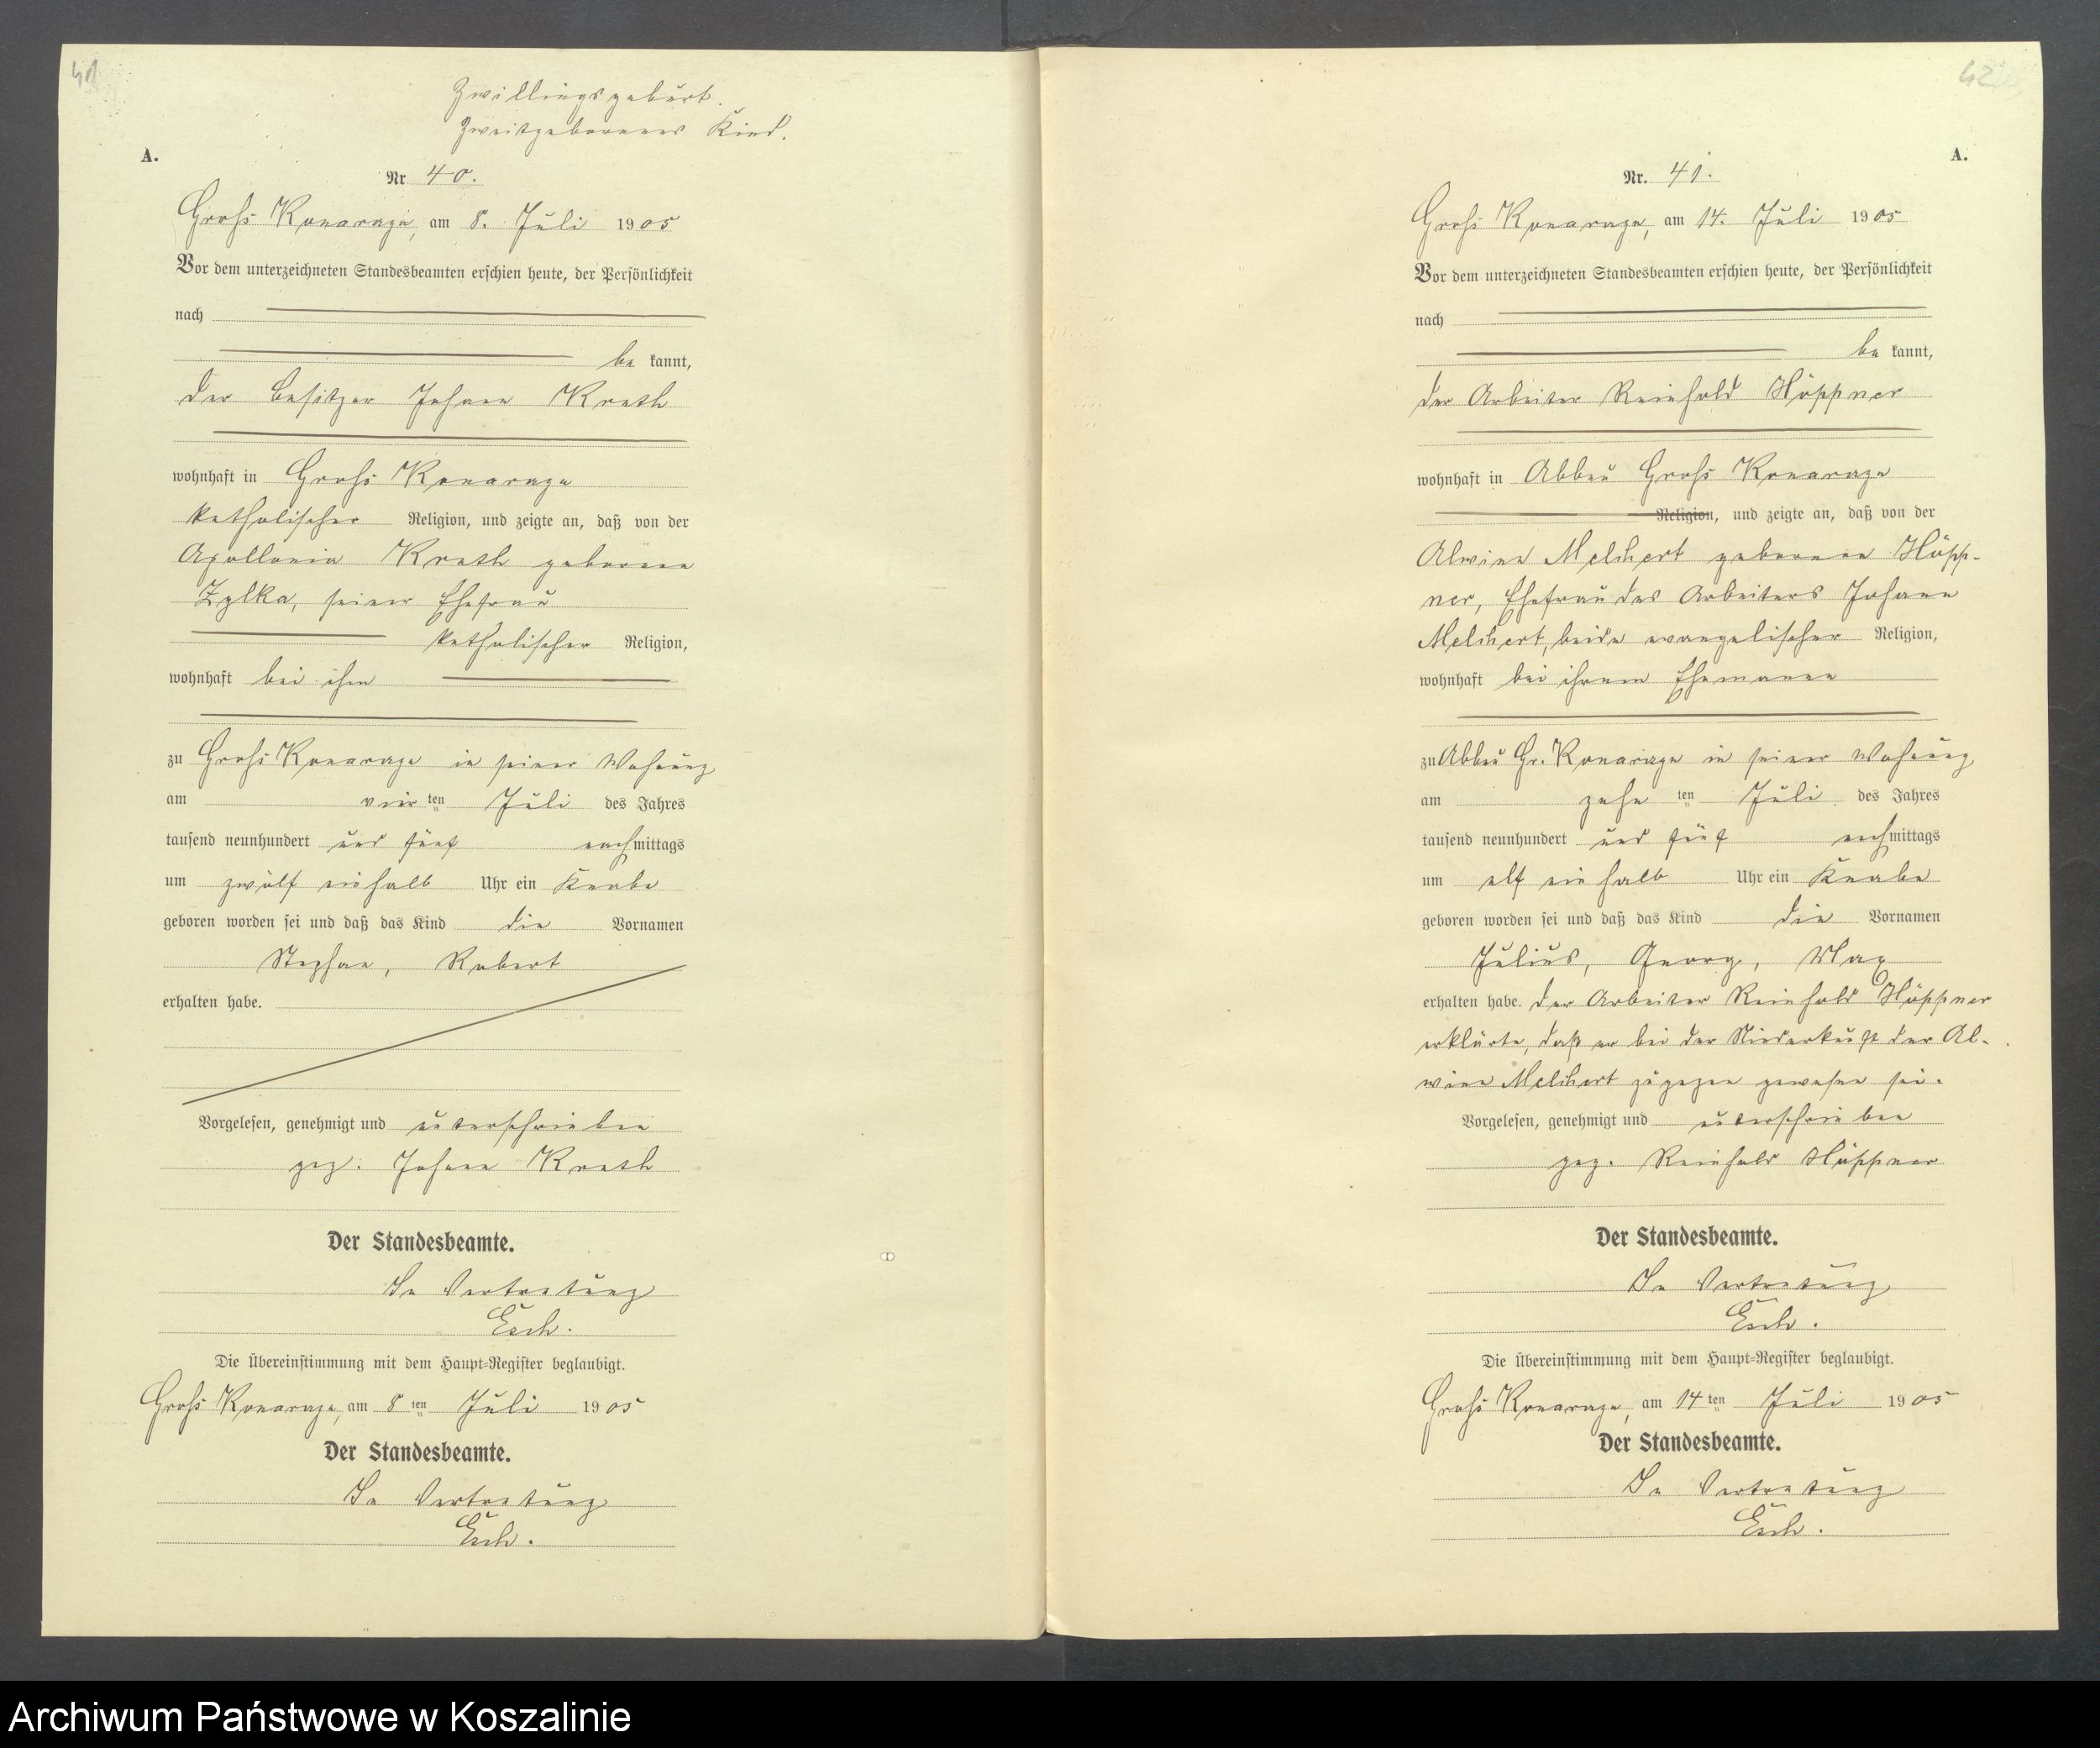 41
Zwillingsgeburt.
Zweitgeborenes Kind.
A.
Nr 40.
Groß Konarczyn, am 8. Juli 1905
Vor dem unterzeichneten Standesbeamten erschien heute, der Persönlichkeit
nach
be kannt,
der Besitzer Johann
wohnhaft in Groß Konarczyn
katholischer Religion, und zeigte an, daß von der
Apollonia geborene
Zylka, seiner Ehefrau
katholischer Religion,
wohnhaft bei ihm
zu Groß Konarczyn in seiner Wohnung
am vier ten Juli des Jahres
tausend neunhundert und fünf nachmittags
um zwölf einhalb Uhr ein Knabe
geboren worden sei und daß das Kind die Vornamen
Stephan, Robert
erhalten habe.
Vorgelesen, genehmigt und unterschrieben
gez. Johann
Der Standesbeamte.
In Vertretung
Esch.
Die Übereinstimmung mit dem Haupt-Register beglaubigt.
Groß Konarczyn, am 8 ten Juli 1905
Der Standesbeamte.
In Vertretung
Esch.
42
A.
Nr. 41.
Groß Konarczyn, am 14. Juli 1905
Vor dem unterzeichneten Standesbeamten erschien heute, der Persönlichkeit
nach
be kannt,
der Arbeiter Reinhold Höppner
wohnhaft in Abbau Groß Konarczyn
Religion, und zeigte an, daß von der
Alwine Melchert geborene Höpp-
ner, Ehefrau des Arbeiters Johann
Melchert, beide evangelischer Religion,
wohnhaft bei ihrem Ehemanne
zu Abbau Gr. Konarczyn in seiner Wohnung
am zehn ten Juli des Jahres
tausend neunhundert und fünf nachmittags
um elf einhalb Uhr ein Knabe
geboren worden sei und daß das Kind die Vornamen
Julius, Georg, Max
erhalten habe. Der Arbeiter Reinhold Höppner
erklärte, daß er bei der Niederkunft der Al-
wine Melchert zugegen gewesen sei.
Vorgelesen, genehmigt und unterschrieben
gez. Reinhold Höppner
Der Standesbeamte.
In Vertretung
Esch.
Die Übereinstimmung mit dem Haupt-Register beglaubigt.
Groß Konarczyn, am 14 ten Juli 1905
Der Standesbeamte.
In Vertretung
Esch.
Archiwum Państwowe w Koszalinie